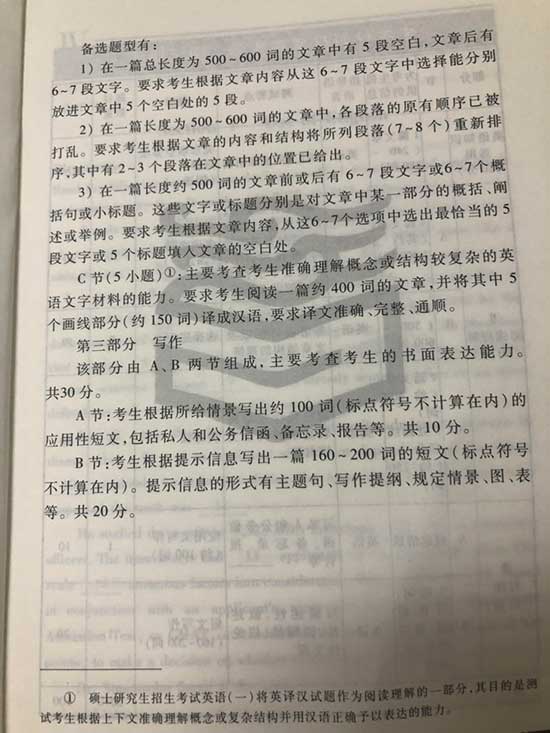 备选题型有：
1) 在一篇总长度为 500~600 词的文章中有 5 段空白，文章后有
6~7 段文字。要求考生根据文章内容从这 6~7 段文字中选择能分别
放进文章中 5 个空白处的 5 段。
2) 在一篇长度为 500~600 词的文章中，各段落的原有顺序已被
打乱。要求考生根据文章的内容和结构将所列段落(7~8 个)重新排
序，其中有 2~3 个段落在文章中的位置已给出。
3) 在一篇长度约 500 词的文章前或后有 6~7 段文字或6~7个概
括句或小标题。这些文字或标题分别是对文章中某一部分的概括、阐
述或举例。要求考生根据文章内容，从这6~7个选项中选出最恰当的 5
段文字或 5 个标题填入文章的空白处。
C 节(5 小题)①：主要考查考生准确理解概念或结构较复杂的英
语文字材料的能力。要求考生阅读一篇约 400 词的文章，并将其中 5
个画线部分(约 150 词)译成汉语，要求译文准确、完整、通顺。
第三部分 写作
该部分由 A、B 两节组成，主要考查考生的书面表达能力。
共30 分。
A 节：考生根据所给情景写出约 100 词(标点符号不计算在内)的
应用性短文，包括私人和公务信函、备忘录、报告等。共 10 分。
B 节：考生根据提示信息写出一篇 160~200 词的短文(标点符号
不计算在内)。提示信息的形式有主题句、写作提纲、规定情景、图、表
等。共 20 分。
① 硕士研究生招生考试英语(一)将英译汉试题作为阅读理解的一部分，其目的是测
试考生根据上下文准确理解概念或复杂结构并用汉语正确予以表达的能力。